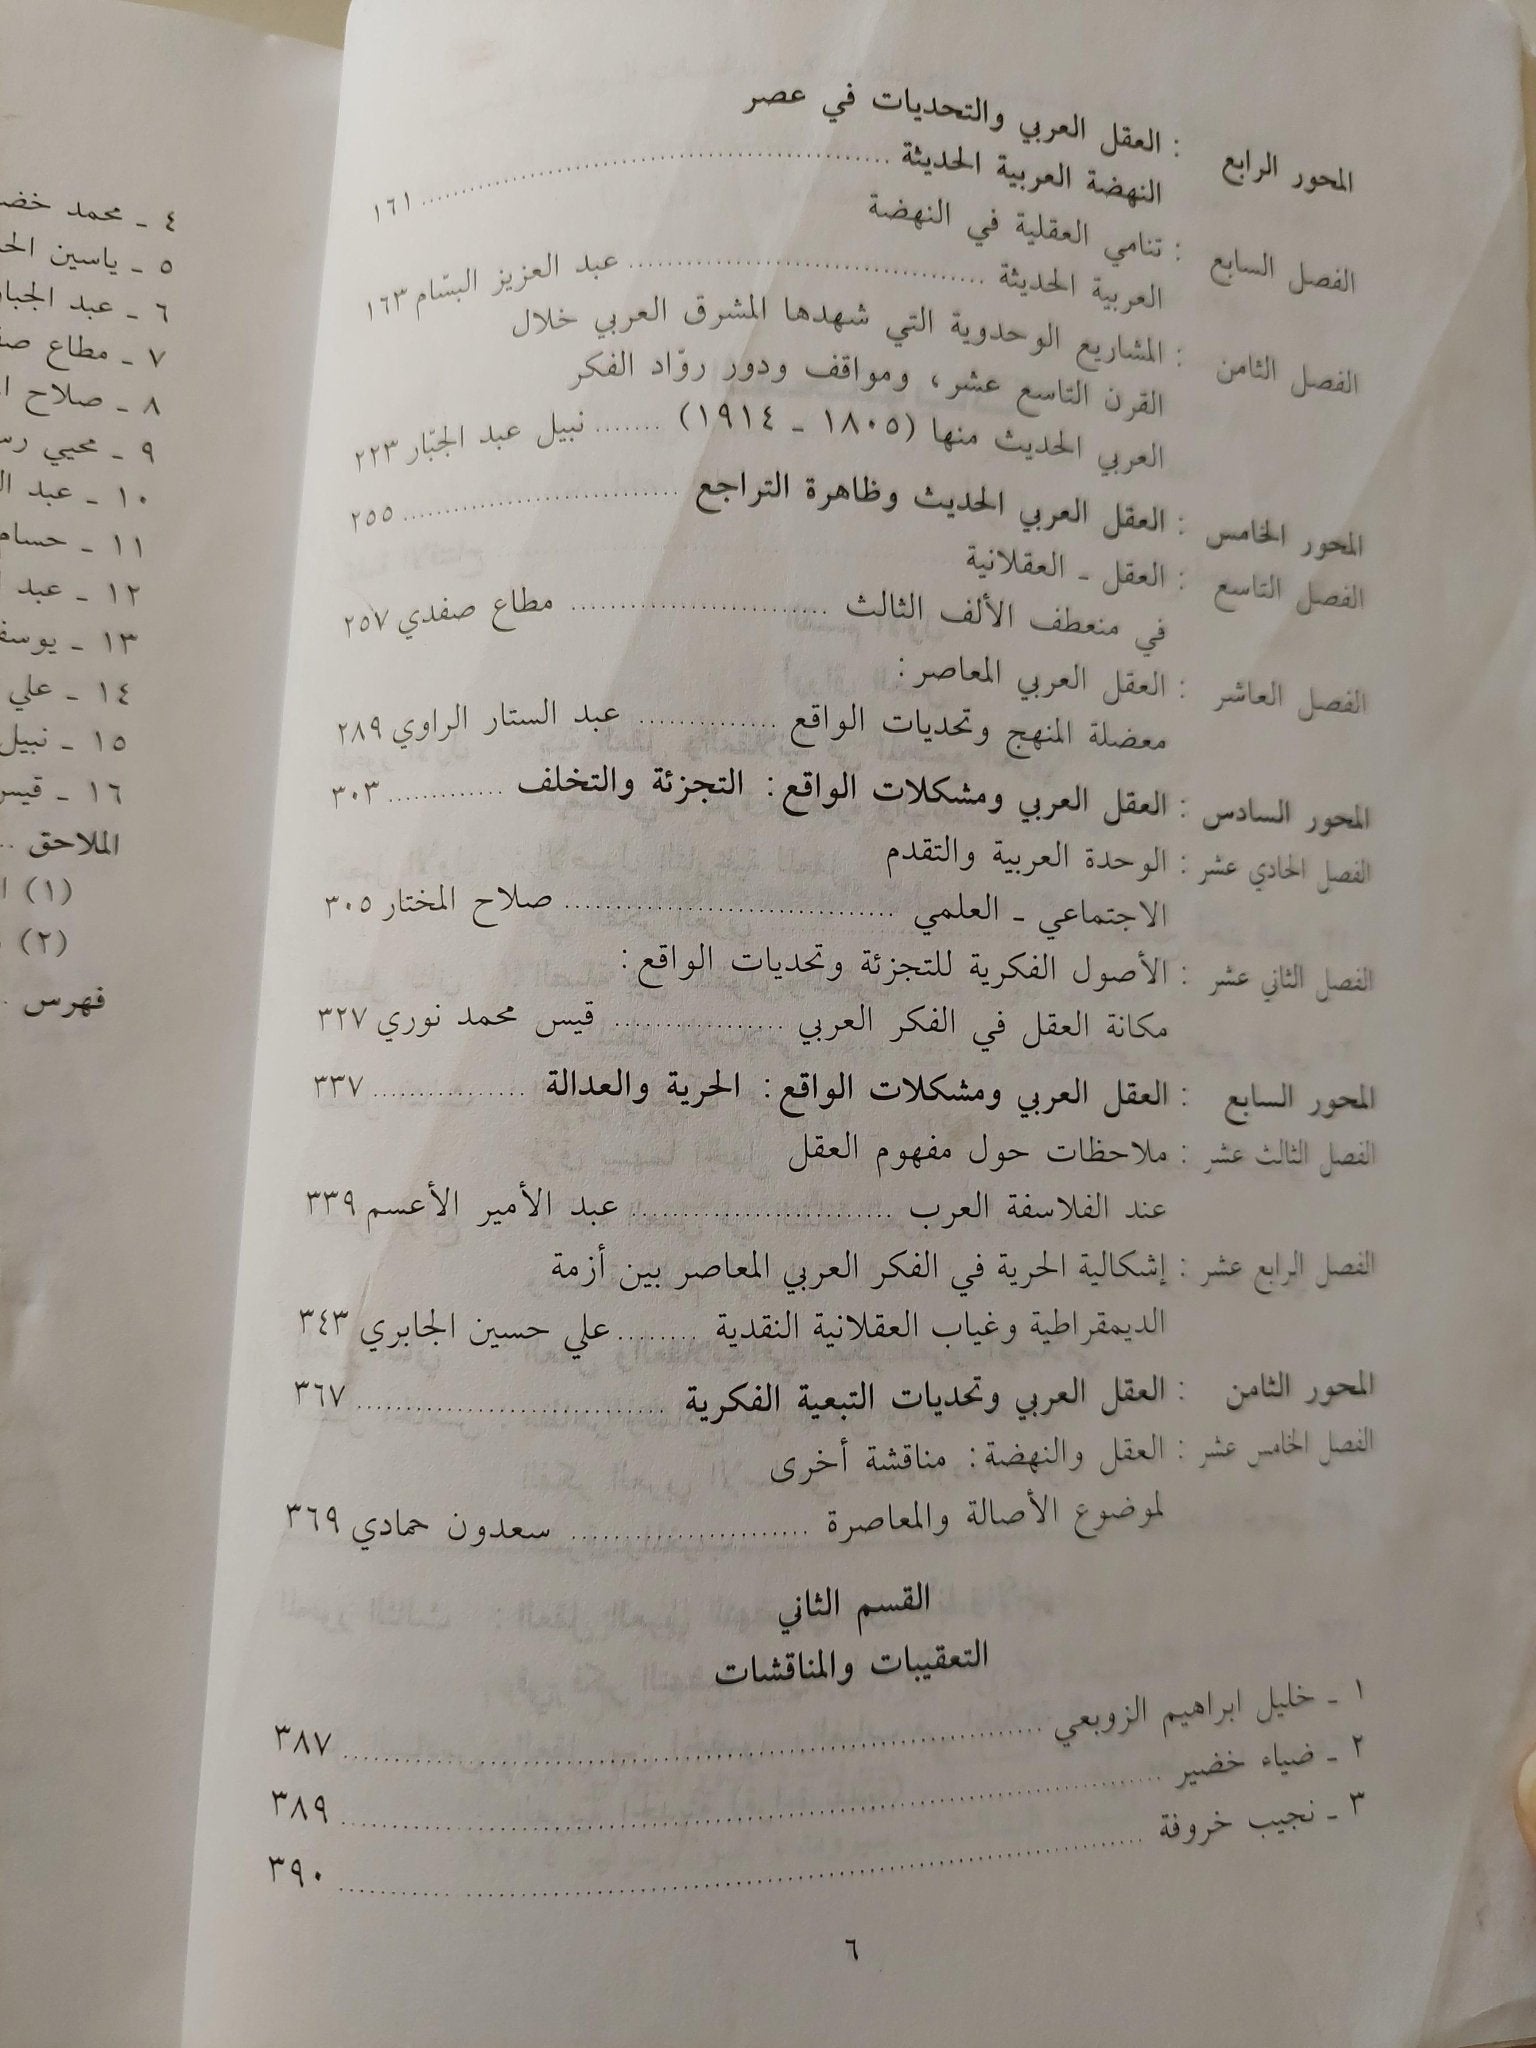 المحور الرابع : العقل العربي والتحديات في عصر
النهضة العربية الحديثة ........ ١٦١
الفصل السابع : تنامي العقلية في النهضة
العربية الحديثة ........ عبد العزيز البسّام ١٦٣
الفصل الثامن : المشاريع الوحدوية التي شهدها المشرق العربي خلال
القرن التاسع عشر، ومواقف ودور روّاد الفكر
العربي الحديث منها (١٨٠٥ ـ ١٩١٤) ........ نبيل عبد الجبّار ٢٢٣
المحور الخامس : العقل العربي الحديث وظاهرة التراجع ........ ٢٥٥
الفصل التاسع : العقل ـ العقلانية
في منعطف الألف الثالث ........ مطاع صفدي ٢٥٧
الفصل العاشر : العقل العربي المعاصر :
معضلة المنهج وتحديات الواقع ........ عبد الستار الراوي ٢٨٩
المحور السادس : العقل العربي ومشكلات الواقع : التجزئة والتخلف ........ ٣٠٣
الفصل الحادي عشر : الوحدة العربية والتقدم
الاجتماعي ـ العلمي ........ صلاح المختار ٣٠٥
الفصل الثاني عشر : الأصول الفكرية للتجزئة وتحديات الواقع :
مكانة العقل في الفكر العربي ........ قيس محمد نوري ٣٢٧
المحور السابع : العقل العربي ومشكلات الواقع : الحرية والعدالة ........ ٣٣٧
الفصل الثالث عشر : ملاحظات حول مفهوم العقل
عند الفلاسفة العرب ........ عبد الأمير الأعسم ٣٣٩
الفصل الرابع عشر : إشكالية الحرية في الفكر العربي المعاصر بين أزمة
الديمقراطية وغياب العقلانية النقدية ........ علي حسين الجابري ٣٤٣
المحور الثامن : العقل العربي وتحديات التبعية الفكرية ........ ٣٦٧
الفصل الخامس عشر : العقل والنهضة : مناقشة أخرى
لموضوع الأصالة والمعاصرة ........ سعدون حمادي ٣٦٩
القسم الثاني
التعقيبات والمناقشات
١ ـ خليل ابراهيم الزوبعي ........ ٣٨٧
٢ ـ ضياء خضير ........ ٣٨٩
٣ ـ نجيب خروفة ........ ٣٩٠
٦
٤ ـ محمد
٥ ـ ياسين
٦ ـ عبد
٧ ـ مطاع
٨ ـ صلاح
٩ ـ محيي
١٠ ـ عبد
١١ ـ حسام
١٢ ـ عبد
١٣ ـ
١٤ ـ علي
١٥ ـ نبيل
١٦ ـ قيس
الملاحق ..
(١)
(٢)
فهرس ..